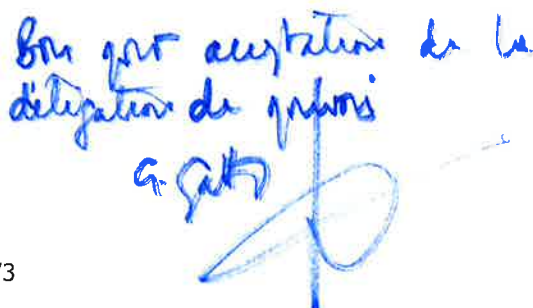 Bon pour acceptation de la
délégation de pouvoirs
G. Gatto
/3